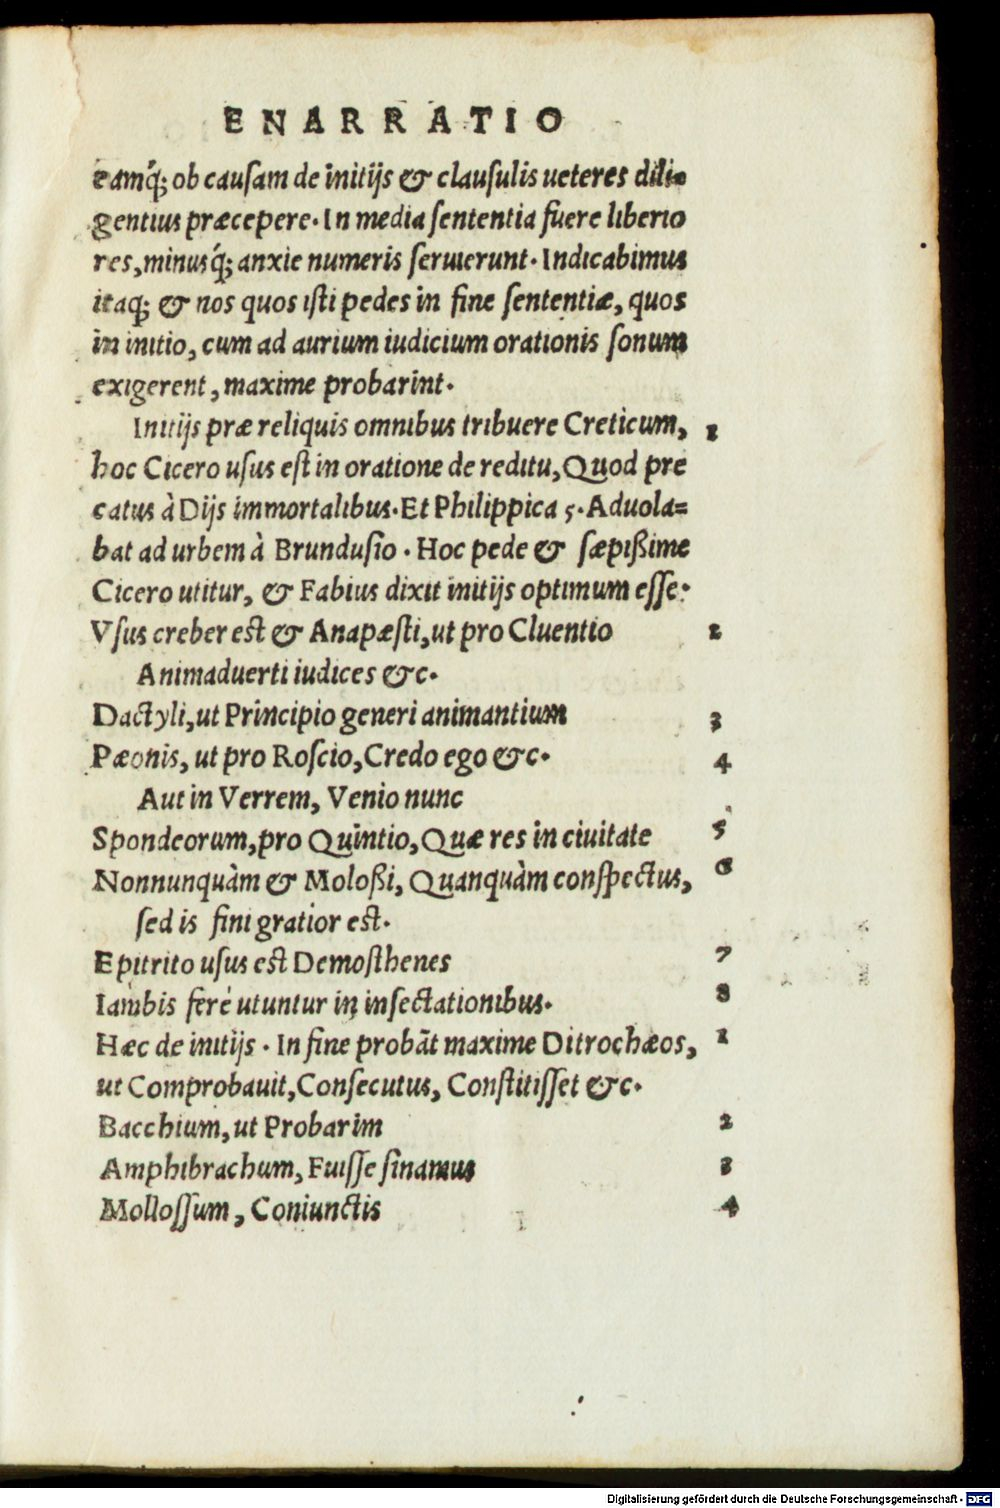 ENARRATIO
eamq́; ob causam de initijs & clausulis ueteres dili=
gentius præcepere. In media sententia fuere liberio
res, minusq́; anxie numeris seruierunt. Indicabimus
itaq; & nos quos isti pedes in fine sententiæ, quos
in initio, cum ad aurium iudicium orationis sonum
exigerent, maxime probarint.
Initijs præ reliquis omnibus tribuere Creticum, 1
hoc Cicero usus est in oratione de reditu, Quod pre
catus à Dijs immortalibus. Et Philippica 5. Aduola=
bat ad urbem à Brundusio. Hoc pede & sæpißime
Cicero utitur, & Fabius dixit initijs optimum esse.
Vsus creber est & Anapæsti, ut pro Cluentio 2
Animaduerti iudices &c.
Dactyli, ut Principio generi animantium 3
Pæonis, ut pro Roscio, Credo ego &c. 4
Aut in Verrem, Venio nunc
Spondeorum, pro Quintio, Quæ res in ciuitate 5
Nonnunquàm & Moloßi, Quanquàm conspectus, 6
sed is fini gratior est.
Epitrito usus est Demosthenes 7
Iambis ferè utuntur in insectationibus. 8
Hæc de initijs. In fine probāt maxime Ditrochæos, 1
ut Comprobauit, Consecutus, Constitisset &c.
Bacchium, ut Probarim 2
Amphibrachum, Fuisse sinamus 3
Mollossum, Coniunctis 4
Digitalisierung gefördert durch die Deutsche Forschungsgemeinschaft - DFG